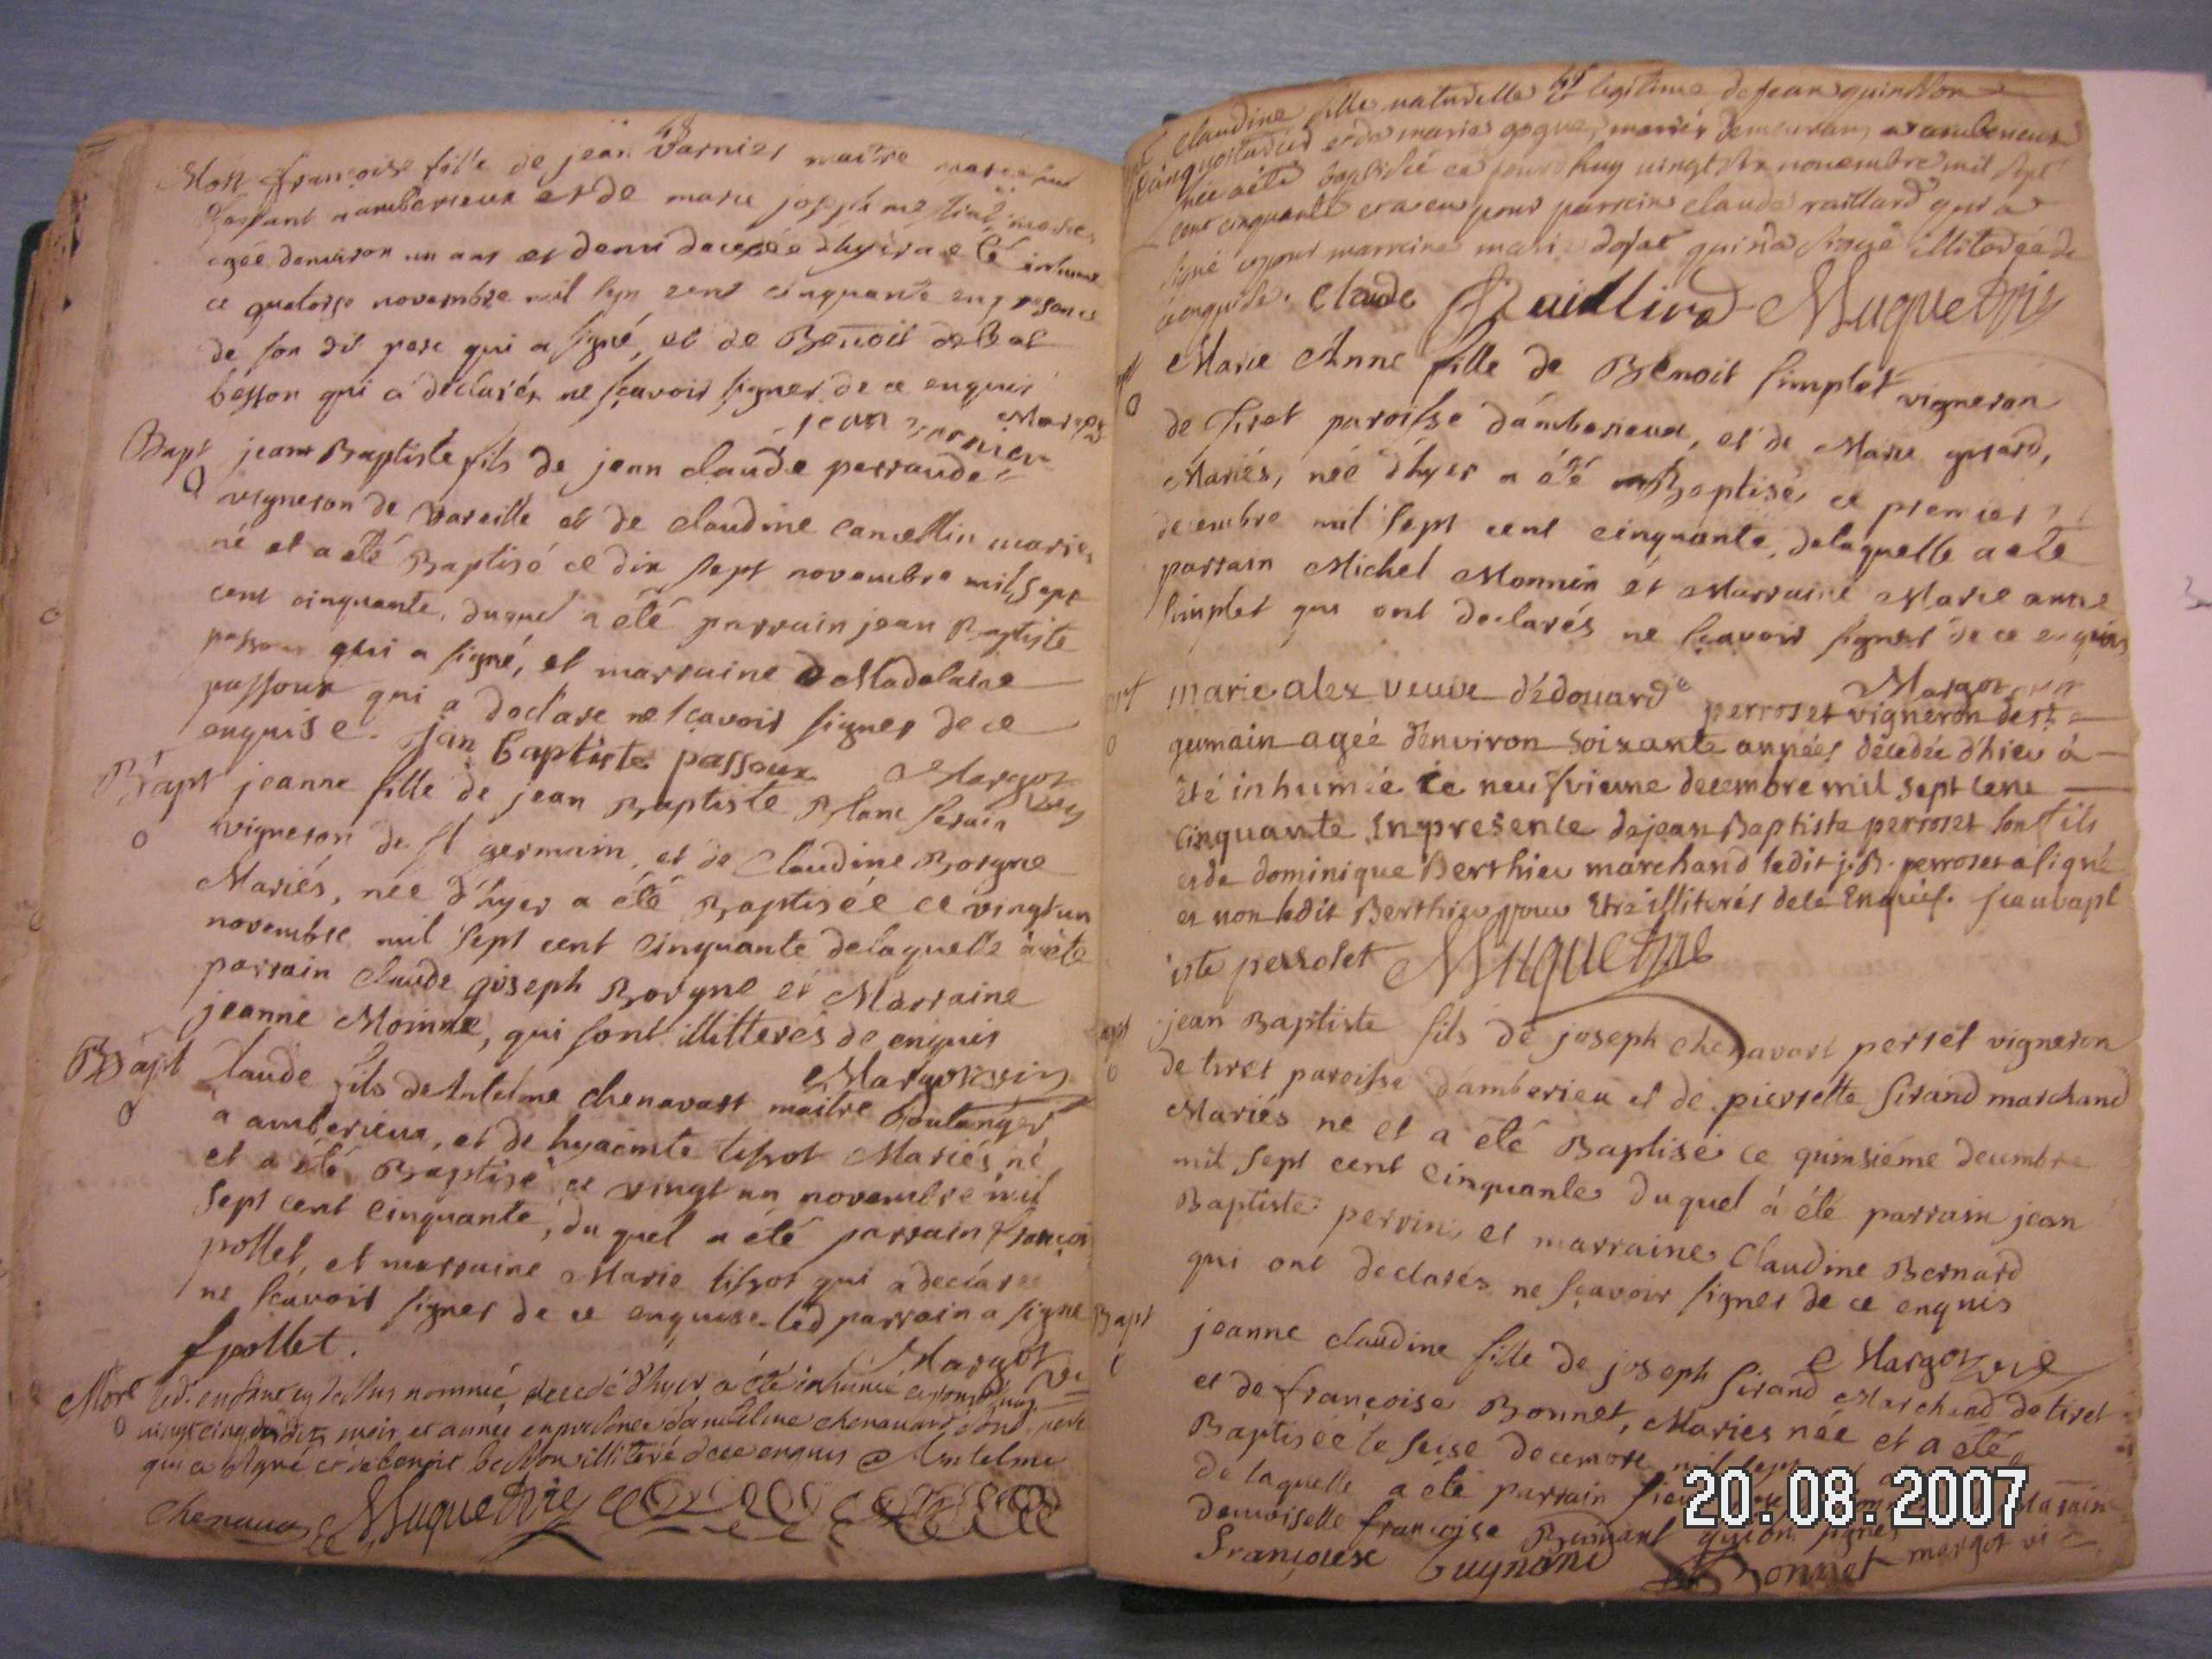 Mort françoise fille de jean Varnier maitre
ambericux et de marie joseph
agée denviron un ans et demi decedée d'hyer a été inhumé
ce quatorse novembre mil sept cent cinquante en presance
de son dit pere qui a signé, et de Benoit
besson qui a déclarés ne sçavoir signer de ce enquis
jean varnier Margoz
Bapt jean Baptiste fils de jean claude perraude
vigneron de Vareille et de claudine Lancellin mariés
né et a eté Baptisé ce dix sept novembre mil sept
cent cinquante, duquel a été parrain jean Baptiste
passoux qui a signé, et marraine Madelaine
passoux qui a declaré ne sçavoir signer de ce
enquise. jan baptiste passoux Margoz vic
Bapt jeanne fille de jean Baptiste Blanc serain
vigneron de st germain, et de Claudine Borgne
Mariés, née d'hyer a été Baptisée ce vingt un
novembre mil sept cent cinquante delaquelle a été
parrain claude joseph Borgne et Marraine
jeanne Moinne, qui sont illitterés de enquis
Margoz vic
Bapt Claude fils de Antelme chenavart maitre boulanger
a amberieux, et de hyacinte tissot Mariés né
et a été Baptisé ce vingt un novembre mil
sept cent cinquante, du quel a été parrain françois
pollet, et marraine Marie tissot qui a declaré
ne sçavoir signer de ce enquise led parrain a signé
f pollet. Margoz vi
Mort led. enfant cy dessus nommé, decedé d'hyer a été inhumé
vingt cinq mois et année en presence d'antelme chenavard son pere
qui a signé et de benoit besson illitéré de ce enquis Antelme
chenavar Muguet vic
Claudine fille naturelle et legitime de jean quinson
et de marie gogue, mariés demeurans a amberieux
née a été baptisée ce jourd'huy vingt six novembre mil sept
cent cinquante et a eu pour parrein claude raillard qui a
signé et pour marreine marie qui n'a signé illiterée de
ce enquise. Claude Raillard Muguet vic
Marie Anne fille de Benoit simplet vigneron
de tiret paroisse d'amberieux, et de Marie girard,
Mariés, née d'hyer a été Baptisée ce premier
decembre mil sept cent cinquante, delaquelle a eté
parrain Michel Monnin et Marraine Marie anne
simplet qui ont declarés ne sçavoir signer de ce enquis
Margoz
marie alex veuve d'édouard perroset vigneron de st
germain agée d'environ soixante années décédée d'hier à
été inhumée ce neufvieme decembre mil sept cent
cinquante en presence de jean Baptiste perroset son fils
et de dominique Berthier marchand ledit j. B. perroset a signé
et non ledit Berthier pour être illiterés de ce enquis. jean bapt
iste perroset Muguet vic
jean Baptiste fils de joseph chenavart perret vigneron
de tiret paroisse d'amberieu et de pierrette sirand marchand
Mariés ne et a été Baptisé ce quinsiéme decembre
mil sept cent cinquante duquel a été parrain jean
Baptiste perrin, et marraine Claudine Bernard
qui ont declarés ne sçavoir signer de ce enquis
Margoz vic
Bapt jeanne claudine fille de joseph sirand Marchand de tiret
et de françoise Bonnet, Mariés née et a été
Baptisée le seise decembre mil sept
de laquelle a été parrain sieur Maraine
demoiselle françoise qui ont signés
françoise Guynand Bonnet margot vi
20.08.2007